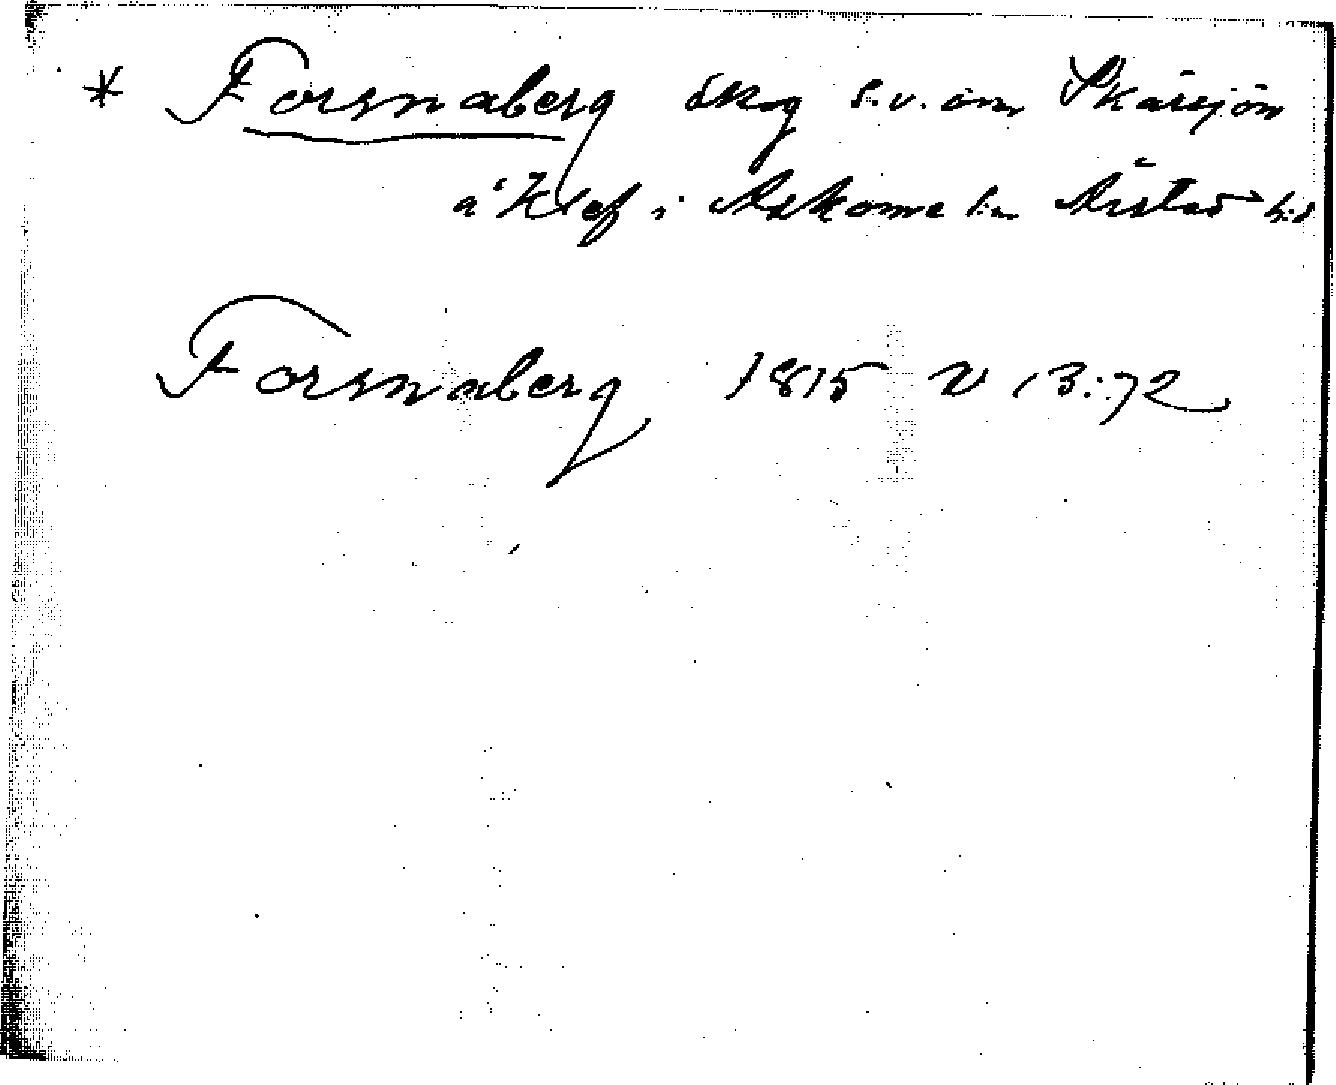 * Forsnaberg skog s.v. om Skärsjön
å Klef i Askome sn Årstad hd
Forsnaberg 1815 v 13:72